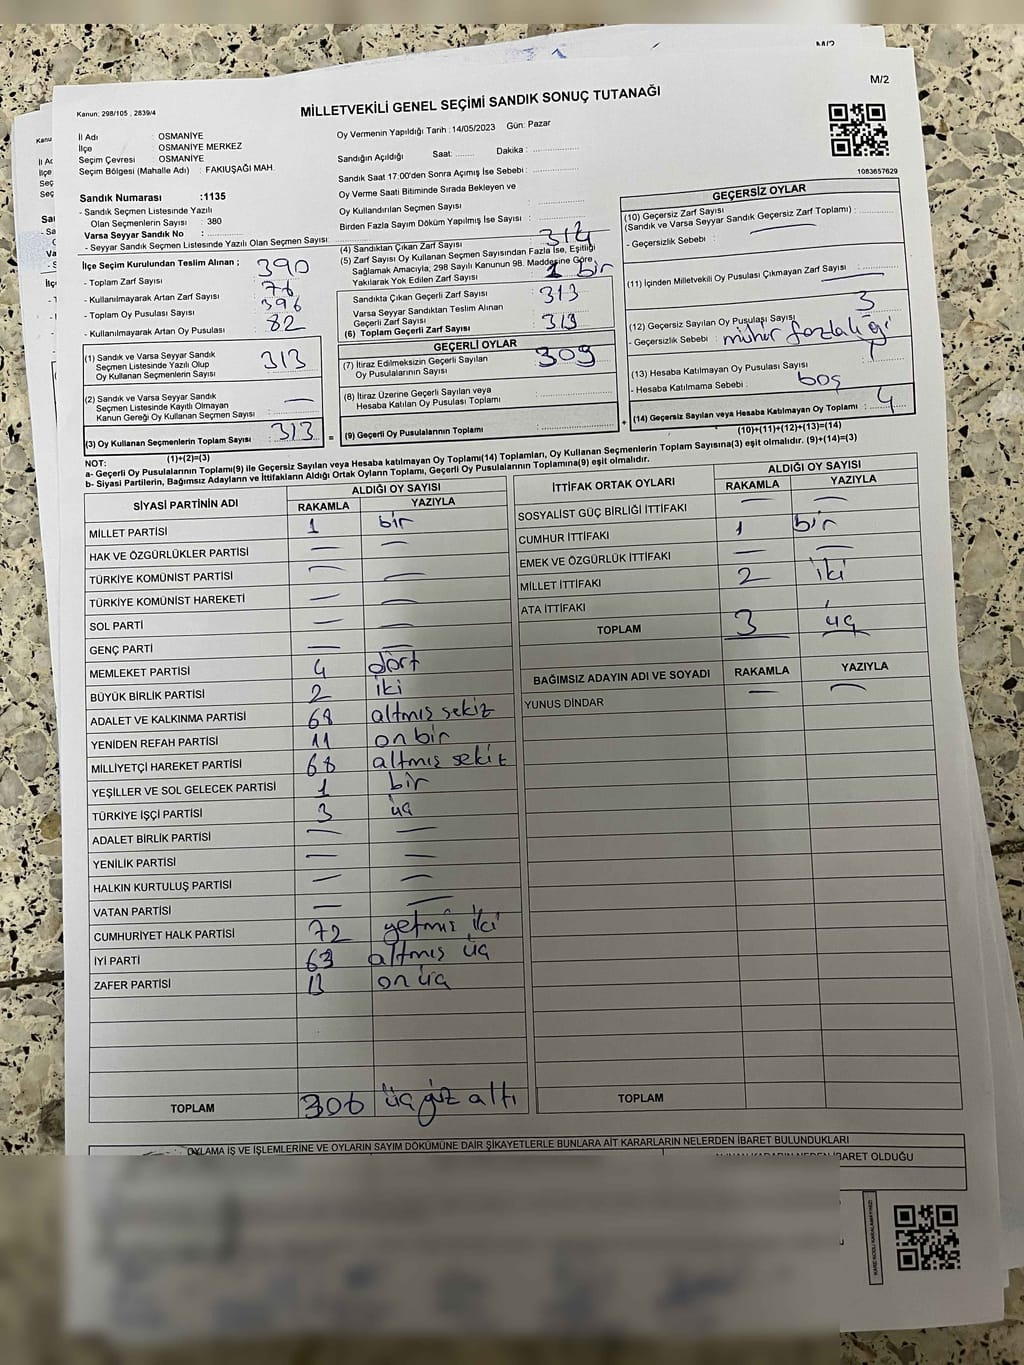 M/2
M/2
Kanun: 298/105 , 2839/4
MİLLETVEKİLİ GENEL SEÇİMİ SANDIK SONUÇ TUTANAĞI
İl Adı : OSMANİYE
İlçe : OSMANİYE MERKEZ
Seçim Çevresi : OSMANİYE
Seçim Bölgesi (Mahalle Adı) : FAKIUŞAĞI MAH.
Sandık Numarası :1135
- Sandık Seçmen Listesinde Yazılı
Olan Seçmenlerin Sayısı : 380
Varsa Seyyar Sandık No :
- Seyyar Sandık Seçmen Listesinde Yazılı Olan Seçmen Sayısı
Oy Vermenin Yapıldığı Tarih : 14/05/2023 Gün: Pazar
Sandığın Açıldığı Saat: Dakika :
Sandık Saat 17:00'den Sonra Açımış İse Sebebi :
Oy Verme Saati Bitiminde Sırada Bekleyen ve
Oy Kullandırılan Seçmen Sayısı :
Birden Fazla Sayım Döküm Yapılmış İse Sayısı :
1083657629
İlçe Seçim Kurulundan Teslim Alınan ;
- Toplam Zarf Sayısı : 390
- Kullanılmayarak Artan Zarf Sayısı : 76
- Toplam Oy Pusulası Sayısı : 396
- Kullanılmayarak Artan Oy Pusulası : 82
(1) Sandık ve Varsa Seyyar Sandık
Seçmen Listesinde Yazılı Olup
Oy Kullanan Seçmenlerin Sayısı : 313
(2) Sandık ve Varsa Seyyar Sandık
Seçmen Listesinde Kayıtlı Olmayan
Kanun Gereği Oy Kullanan Seçmen Sayısı : —
(3) Oy Kullanan Seçmenlerin Toplam Sayısı : 313
(1)+(2)=(3)
(4) Sandıktan Çıkan Zarf Sayısı : 314
(5) Zarf Sayısı Oy Kullanan Seçmen Sayısından Fazla İse, Eşitliği
Sağlamak Amacıyla, 298 Sayılı Kanunun 98. Maddesine Göre
Yakılarak Yok Edilen Zarf Sayısı : 1 bir
Sandıkta Çıkan Geçerli Zarf Sayısı : 313
Varsa Seyyar Sandıktan Teslim Alınan
Geçerli Zarf Sayısı :
(6) Toplam Geçerli Zarf Sayısı : 313
GEÇERLİ OYLAR
(7) İtiraz Edilmeksizin Geçerli Sayılan
Oy Pusulalarının Sayısı : 309
(8) İtiraz Üzerine Geçerli Sayılan veya
Hesaba Katılan Oy Pusulası Toplamı :
= (9) Geçerli Oy Pusulalarının Toplamı : +
GEÇERSİZ OYLAR
(10) Geçersiz Zarf Sayısı
(Sandık ve Varsa Seyyar Sandık Geçersiz Zarf Toplamı) :
- Geçersizlik Sebebi : —
(11) İçinden Milletvekili Oy Pusulası Çıkmayan Zarf Sayısı : —
(12) Geçersiz Sayılan Oy Pusulası Sayısı : 3
- Geçersizlik Sebebi : mühür fazlalığı
(13) Hesaba Katılmayan Oy Pusulası Sayısı : 1
- Hesaba Katılmama Sebebi : boş
(14) Geçersiz Sayılan veya Hesaba Katılmayan Oy Toplamı : 4
(10)+(11)+(12)+(13)=(14)
NOT:
a- Geçerli Oy Pusulalarının Toplamı(9) ile Geçersiz Sayılan veya Hesaba katılmayan Oy Toplamı(14) Toplamları, Oy Kullanan Seçmenlerin Toplam Sayısına(3) eşit olmalıdır. (9)+(14)=(3)
b- Siyasi Partilerin, Bağımsız Adayların ve İttifakların Aldığı Ortak Oyların Toplamı, Geçerli Oy Pusulalarının Toplamına(9) eşit olmalıdır.
SİYASİ PARTİNİN ADI ALDIĞI OY SAYISI
RAKAMLA YAZIYLA
MİLLET PARTİSİ 1 bir
HAK VE ÖZGÜRLÜKLER PARTİSİ — —
TÜRKİYE KOMÜNİST PARTİSİ — —
TÜRKİYE KOMÜNİST HAREKETİ — —
SOL PARTİ — —
GENÇ PARTİ — —
MEMLEKET PARTİSİ 4 dört
BÜYÜK BİRLİK PARTİSİ 2 iki
ADALET VE KALKINMA PARTİSİ 68 altmış sekiz
YENİDEN REFAH PARTİSİ 11 on bir
MİLLİYETÇİ HAREKET PARTİSİ 68 altmış sekiz
YEŞİLLER VE SOL GELECEK PARTİSİ 1 bir
TÜRKİYE İŞÇİ PARTİSİ 3 üç
ADALET BİRLİK PARTİSİ — —
YENİLİK PARTİSİ — —
HALKIN KURTULUŞ PARTİSİ — —
VATAN PARTİSİ — —
CUMHURİYET HALK PARTİSİ 72 yetmiş iki
İYİ PARTİ 63 altmış üç
ZAFER PARTİSİ 13 on üç
TOPLAM 306 üç yüz altı
İTTİFAK ORTAK OYLARI ALDIĞI OY SAYISI
RAKAMLA YAZIYLA
SOSYALİST GÜÇ BİRLİĞİ İTTİFAKI — —
CUMHUR İTTİFAKI 1 bir
EMEK VE ÖZGÜRLÜK İTTİFAKI — —
MİLLET İTTİFAKI 2 iki
ATA İTTİFAKI
TOPLAM 3 üç
BAĞIMSIZ ADAYIN ADI VE SOYADI RAKAMLA YAZIYLA
YUNUS DİNDAR — —
TOPLAM
OYLAMA İŞ VE İŞLEMLERİNE VE OYLARIN SAYIM DÖKÜMÜNE DAİR ŞİKAYETLERLE BUNLARA AİT KARARLARIN NELERDEN İBARET BULUNDUKLARI
İBARET OLDUĞU